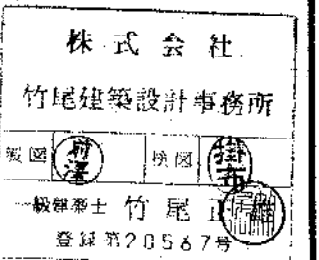 株式会社
竹尾建築設計事務所
製図 検図 掛布
一級建築士 竹尾
登録第20567号